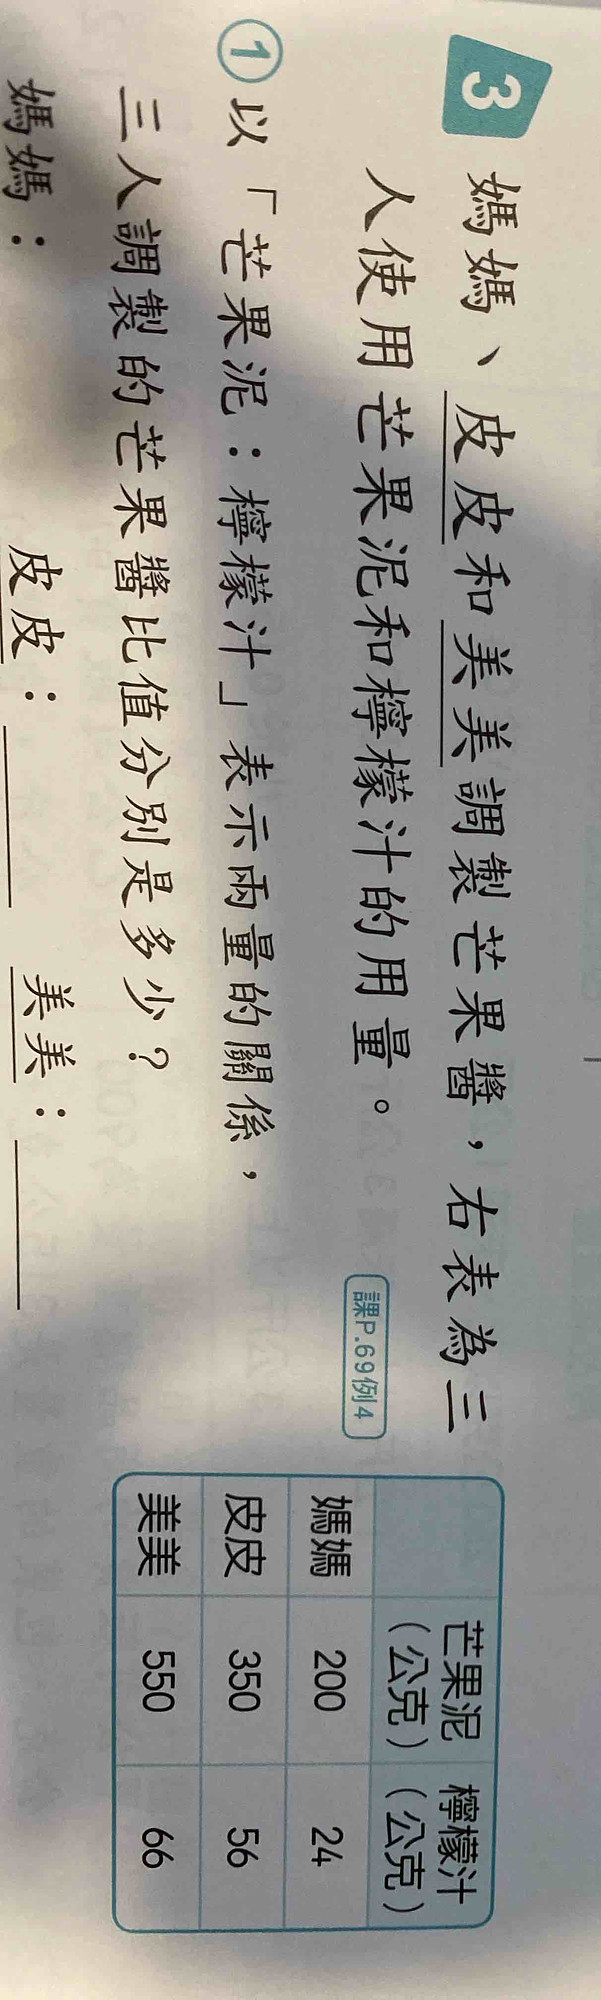 3 媽媽、皮皮和美美調製芒果醬，右表為三
人使用芒果泥和檸檬汁的用量。
課P.69例4
芒果泥（公克） 檸檬汁（公克）
媽媽 200 24
皮皮 350 56
美美 550 66
① 以「芒果泥：檸檬汁」表示兩量的關係，
三人調製的芒果醬比值分別是多少？
媽媽： 皮皮： 美美：